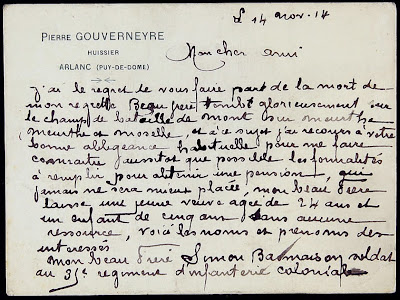 L 14 nov. 14
PIERRE GOUVERNEYRE
HUISSIER
ARLANC (PUY-DE-DOME)
Mon cher ami
J'ai le regret de vous faire part de la mort de
mon regretté Beau frère tombé glorieusement sur
le champ de bataille de mont sur meurthe
(meurthe et moselle, et à ce sujet j'ai recours à votre
bonne obligeance habituelle pour me faire
connaitre aussitot que possible les formalités
à remplir pour obtenir une pension, qui
jamais ne sera mieux placée, mon beau frère
laisse une jeune veuve agée de 24 ans et
un enfant de cinq ans sans aucune
ressource, voici les noms et prenoms des
interessés
mon beau frere Simon Barmaison soldat
au 35e regiment d'infanterie coloniale